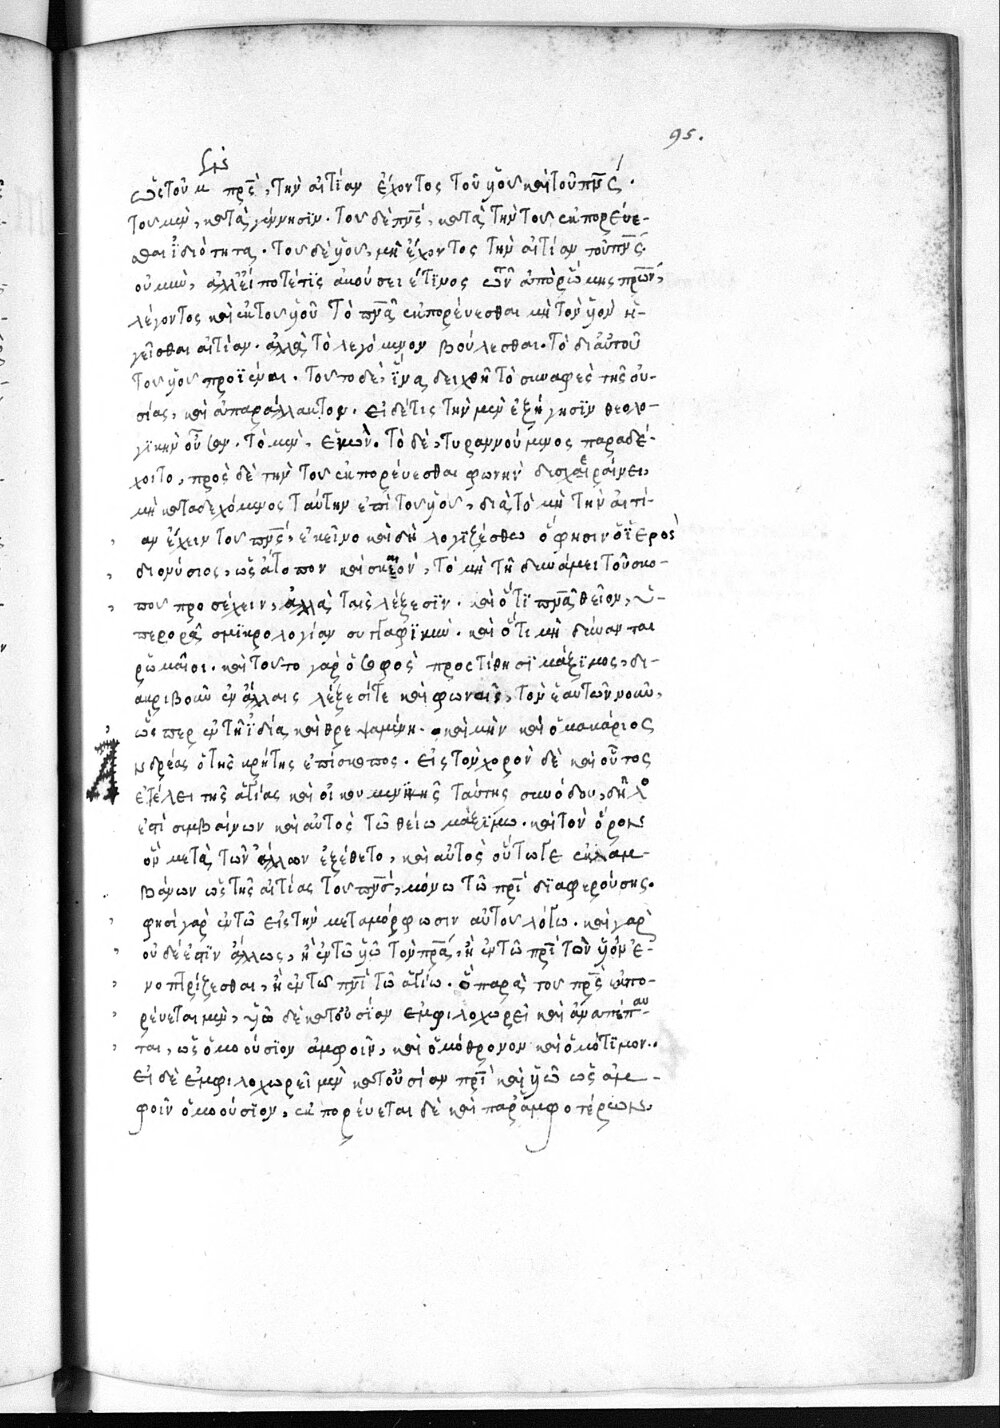 95.
ὡς τοῦ μὲν πρς, τὴν αἰτίαν ἔχοντος τοῦ υἱοῦ καὶ τοῦ πνς.
τοῦ μὲν, κατὰ γέννησϊν. τοῦ δὲ πνς, κατὰ τὴν τοῦ ἐκπορεύε-
σθαι ἰδιότητα. τοῦ δὲ υἱοῦ, μὴ ἔχοντος τὴν αἰτίαν τοῦ πνς.
οὐ μὴν, ἀλλ' εἴ ποτέ τϊς ἀκούσει
λέγοντος καὶ ἐκ τοῦ υἱοῦ τὸ πνᾶ ἐκπορεύεσθαι μὴ τὸν υἱὸν ἡ-
γεῖσθαι αἰτίαν. ἀλλὰ τὸ λεγόμενον βούλεσθαι. τὸ δι αὐτοῦ
τοῦ υἱοῦ προϊέναι. τοῦτο δὲ, ἵνα δειχθῆ τὸ συναφὲς τῆς οὐ-
σίας, καὶ ἀπαράλλακτον. εἰ δέ τις τὴν μὲν ἐξήγησϊν θεολο-
γϊκὴν οὖσαν. τὸ μὲν, ἑκὼν. τὸ δὲ, τυραννούμενος παραδέ-
χοιτο, πρὸς δὲ τὴν τοῦ ἐκπορεύεσθαι φωνὴν δυσχεραίνει,
μὴ καταδεχόμενος ταύτην ἐπὶ τοῦ υἱοῦ, διὰ τὸ μὴ τὴν αἰτί-
αν ἔχειν τοῦ πνς, ἐκεῖνο καὶ δὴ λογϊζέσθω ὅ φησιν ὁ ἱερὸς
διονύσιος, ὡς ἄτοπον καὶ σκαιὸν, τὸ μὴ τῆ δυνάμει τοῦ σκο-
ποῦ προσέχειν, ἀλλὰ ταῖς λέξεσϊν. καὶ ὅτϊ πνᾶ θεῖον, ὑ-
περορᾶ σμϊκρολογίαν συλλαβϊκὴν. καὶ ὅτι μὴ δύνανται
ρωμαῖοι. καὶ τοῦτο γὰρ ὁ σοφὸς προστίθησϊ μάξϊμος, δι-
ακριβοῦν ἐν ἄλλαις λέξεσί τε καὶ φωναῖς, τὸν ἑαυτῶν νοῦν,
ὥσπερ ἐν τῆ ἰδία καὶ θρεψαμένη. καὶ μὴν καὶ ὁ μακάριος
Ἀνδρέας ὁ τῆς κρήτης ἐπίσκοπος. εἰς τὸν χορὸν δὲ καὶ οὗτος
ἐτέλει τῆς ἁγίας καὶ οἰκουμενικῆς ταύτης συνόδου,
ἐστί συμβαίνων καὶ αὐτὸς τῶ θείω μαξίμω. καὶ τὸν ὅρον
ὃν μετὰ τῶν ἄλλων ἐξέθετο, καὶ αὐτὸς οὕτωσὶ ἐκλαμ-
βάνων ὡς τῆς αἰτίας τοῦ πνς, μόνω τῶ πρϊ διαφερούσης.
φησὶ γὰρ ἐν τῶ εἰς τὴν μεταμόρφωσιν αὐτοῦ λόγω. καὶ γὰρ
οὐδέ ἐστϊν ἄλλως, ἢ ἐν τῶ υἱῶ τὸν πρα, ἢ ἐν τῶ πρϊ τὸν υἱὸν ἐ-
νοπτρίζεσθαι, ἢ ἐν τῶ πνϊ τῶ ἁγίω. ὃ παρὰ τοῦ πρς ἐκπο-
ρεύεται μὲν, υἱῶ δὲ κατ' οὐσίαν ἐμφιλοχωρεῖ καὶ ἀναπέπαυ-
ται, ὡς ὁμοούσϊον ἀμφοῖν, καὶ ὁμόθρονον καὶ ὁμότϊμον.
εἰ δὲ ἐμφιλοχωρεῖ μὲν κατ' οὐσίαν πρϊ καὶ υἱῶ ὡς ἀμ-
φοῖν ὁμοούσϊον, ἐκπορεύεται δὲ καὶ παρ' ἀμφοτέρων,